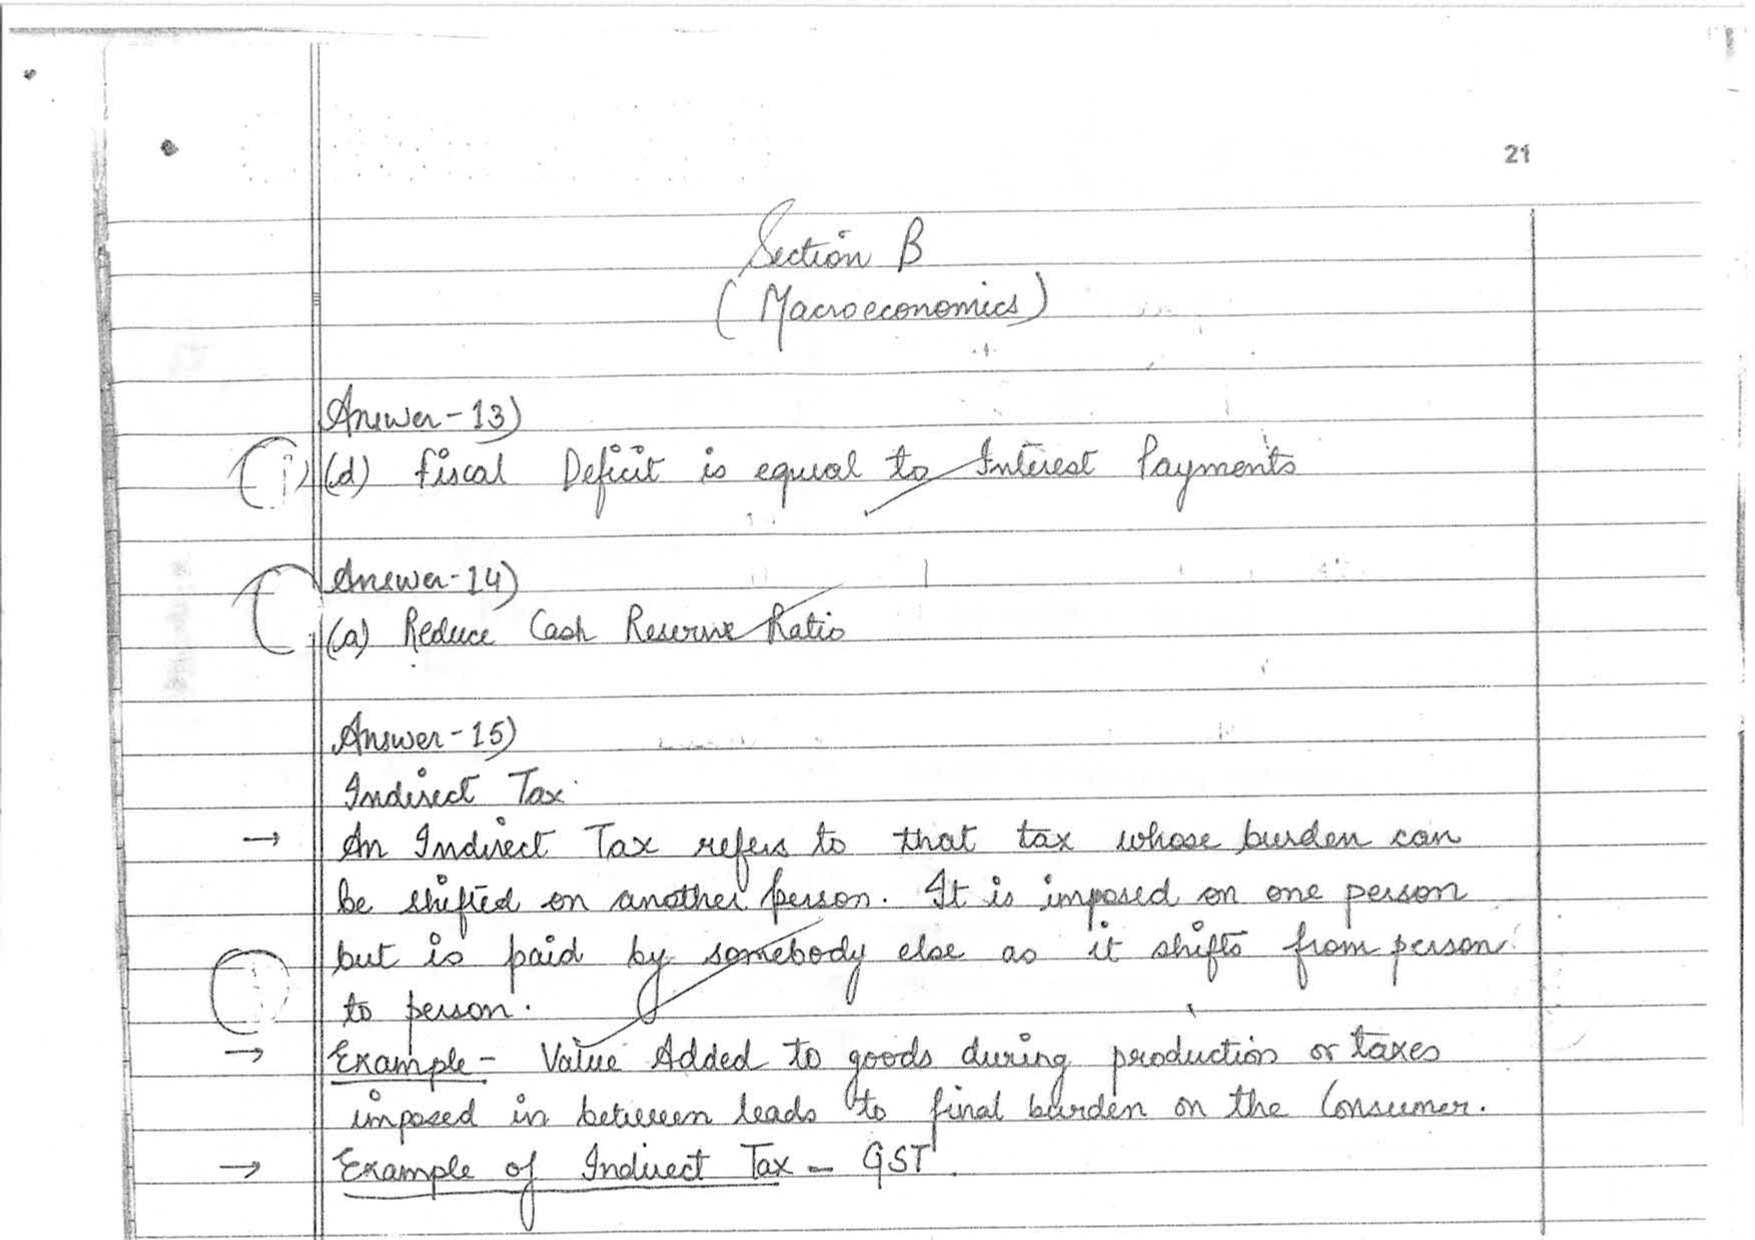 21
Section B
(Macroeconomics)
Answer-13)
(d) Fiscal Deficit is equal to Interest Payments
Answer-14)
(a) Reduce Cash Reserve Ratio
Answer-15)
Indirect Tax
→ An Indirect Tax refers to that tax whose burden can
be shifted on another person. It is imposed on one person
but is paid by somebody else as it shifts from person
to person.
→ Example - Value Added to goods during production or taxes
imposed in between leads to final burden on the Consumer.
→ Example of Indirect Tax - GST.